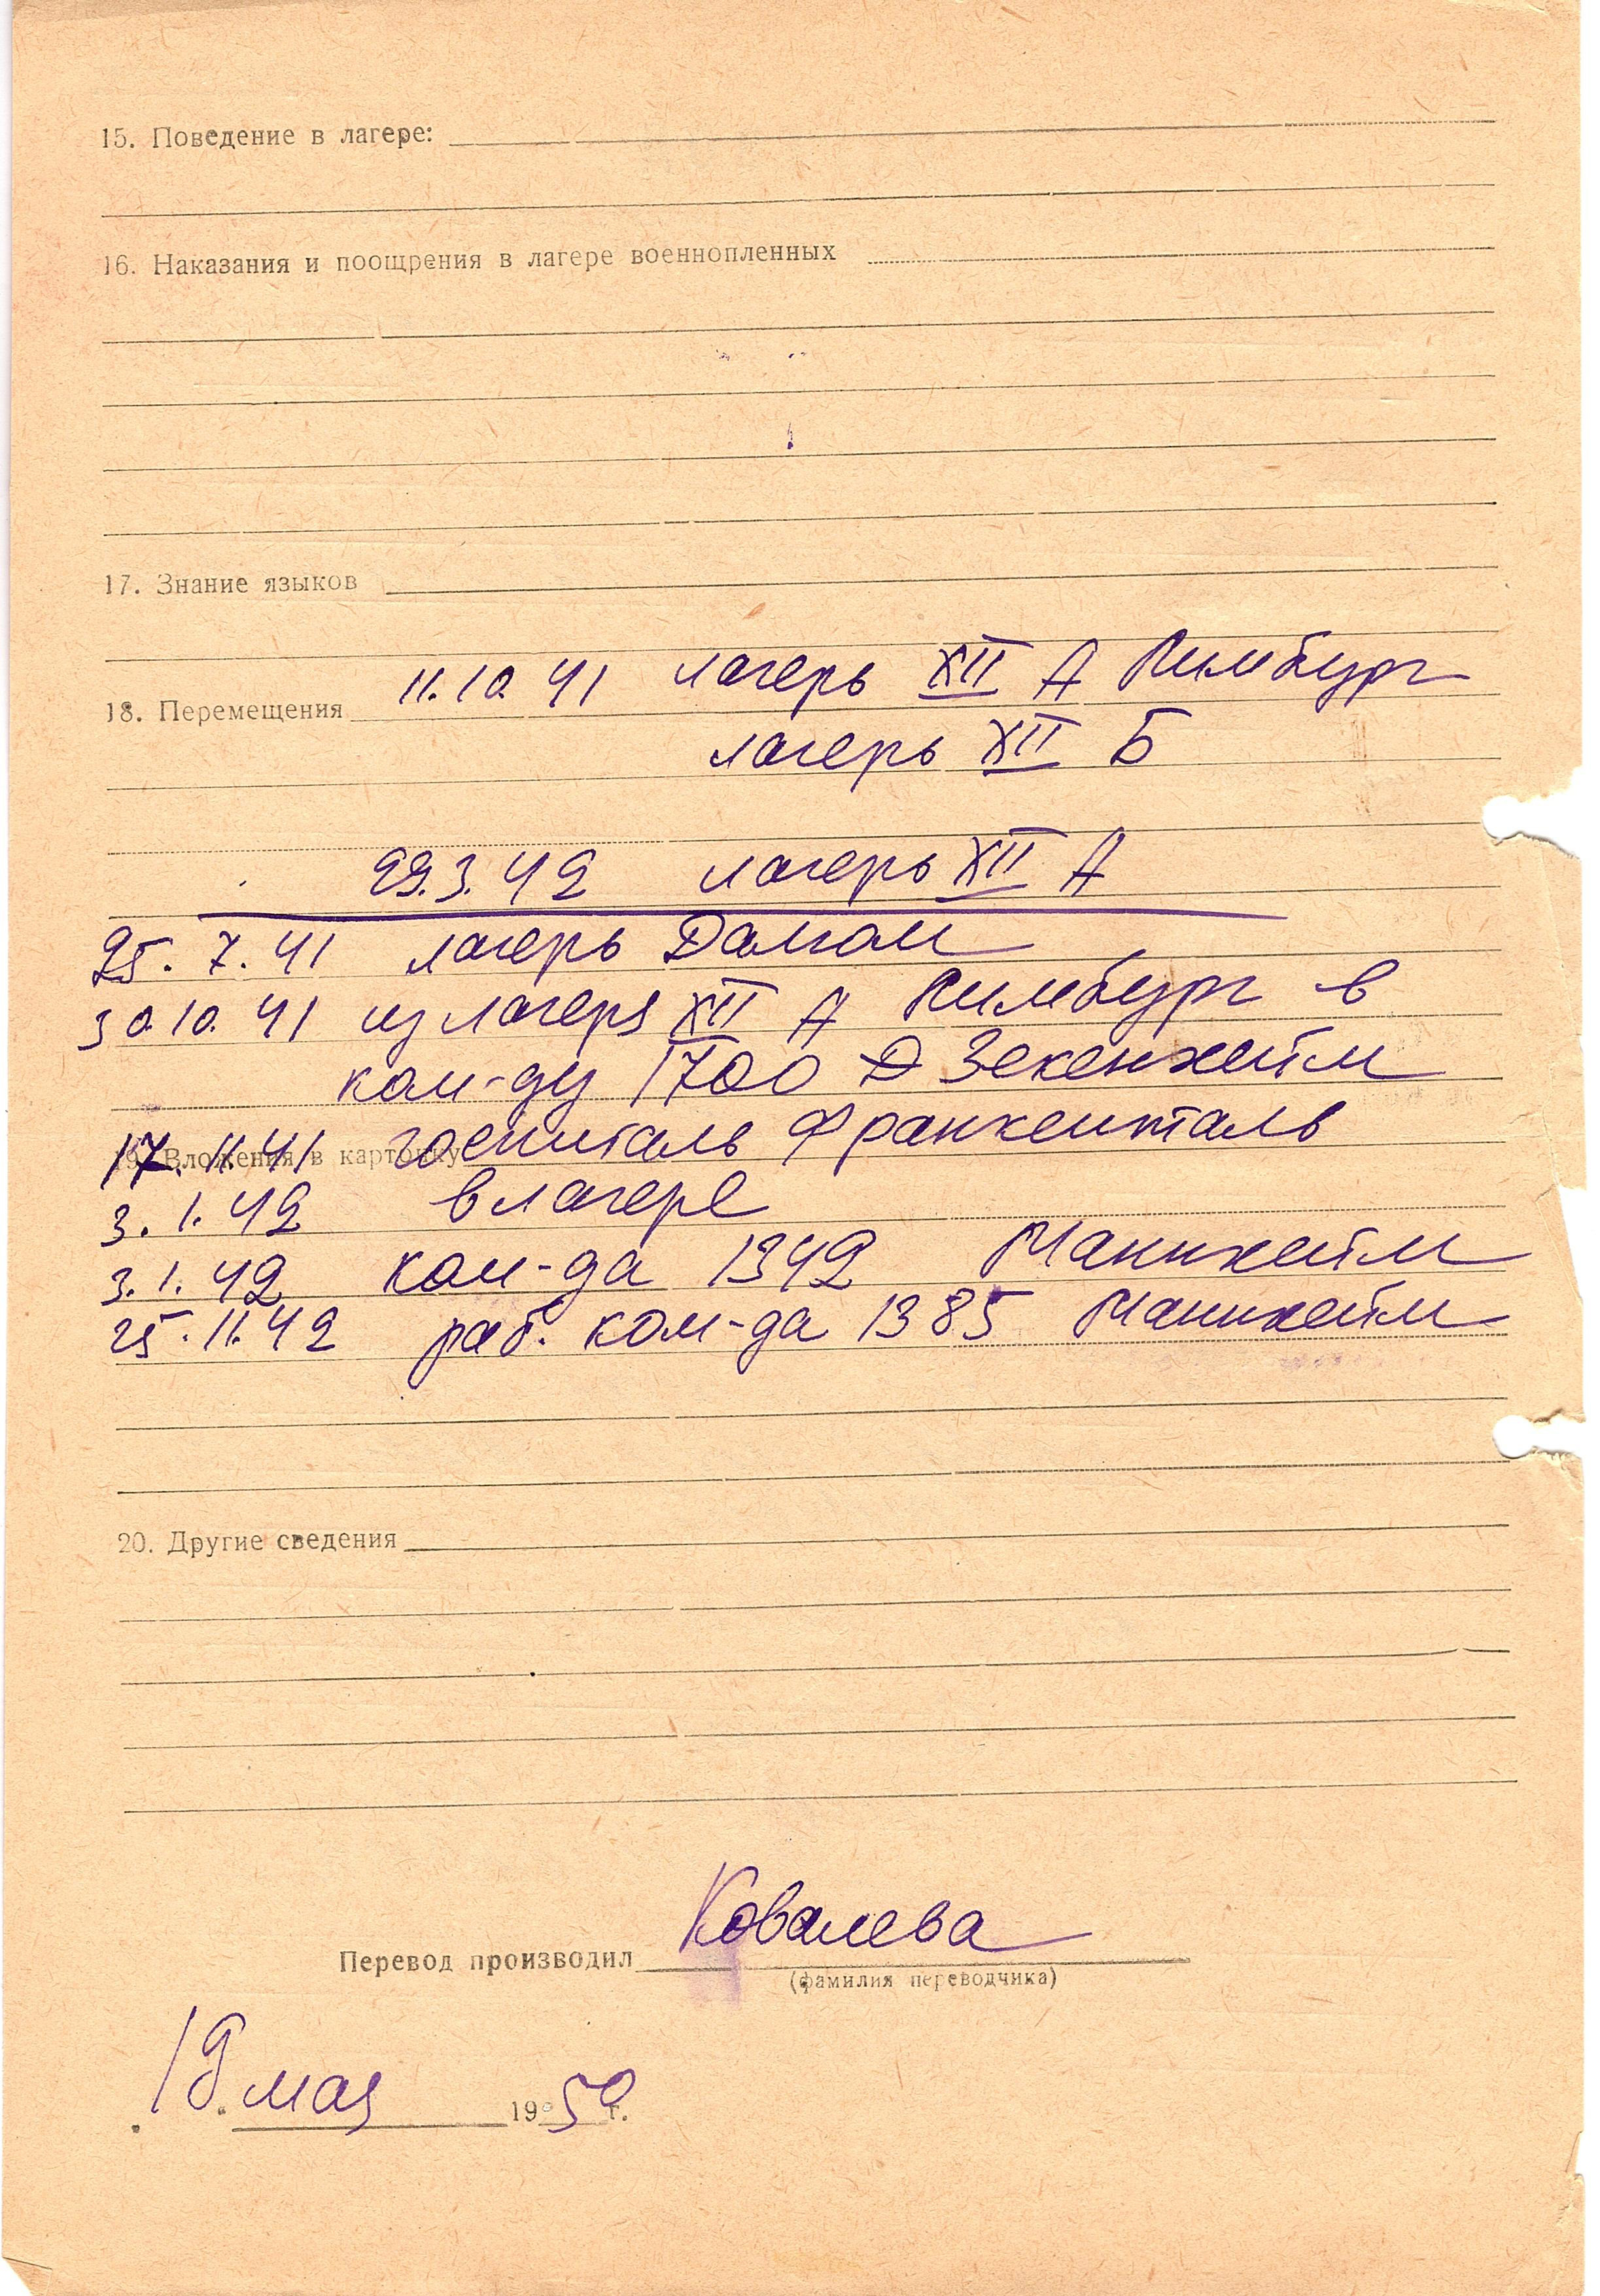 15. Поведение в лагере:
16. Наказания и поощрения в лагере военнопленных
17. Знание языков
18. Перемещения 11.10.41 лагерь XII А Лимбург
лагерь XII Б
29.3.42 лагерь XII А
25.7.41 лагерь
30.10.41 из лагеря XII А Лимбург в
ком-ду 1700 Д Зекенхейм
17.11.41 госпиталь Франкенталь
19. Вложения в карточку
3.1.42 в лагере
3.1.42 ком-да 1342 Маннхейм
25.11.42 раб. ком-да 1385 Маннхейм
20. Другие сведения
Перевод производил Ковалева
(фамилия переводчика)
мая 1950 г.